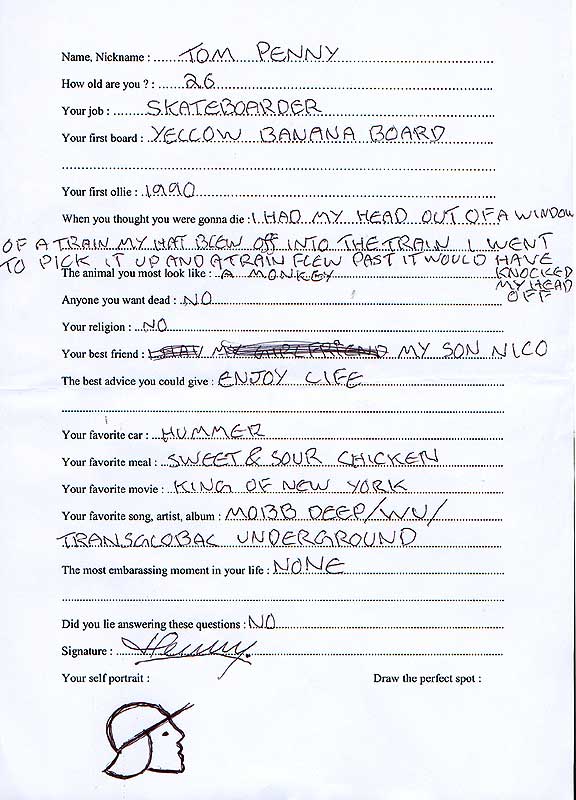 Name, Nickname : TOM PENNY
How old are you ? : 26
Your job : SKATEBOARDER
Your first board : YELLOW BANANA BOARD
Your first ollie : 1990
When you thought you were gonna die : I HAD MY HEAD OUT OF A WINDOW
OF A TRAIN MY HAT BLEW OFF INTO THE TRAIN I WENT
TO PICK IT UP AND A TRAIN FLEW PAST IT WOULD HAVE
KNOCKED
MY HEAD
OFF
The animal you most look like : A MONKEY
Anyone you want dead : NO
Your religion : NO
Your best friend : MY GIRLFRIEND MY SON NICO
The best advice you could give : ENJOY LIFE
Your favorite car : HUMMER
Your favorite meal : SWEET & SOUR CHICKEN
Your favorite movie : KING OF NEW YORK
Your favorite song, artist, album : MOBB DEEP/WU/
TRANSGLOBAL UNDERGROUND
The most embarassing moment in your life : NONE
Did you lie answering these questions : NO
Signature : Penny
Your self portrait :
Draw the perfect spot :